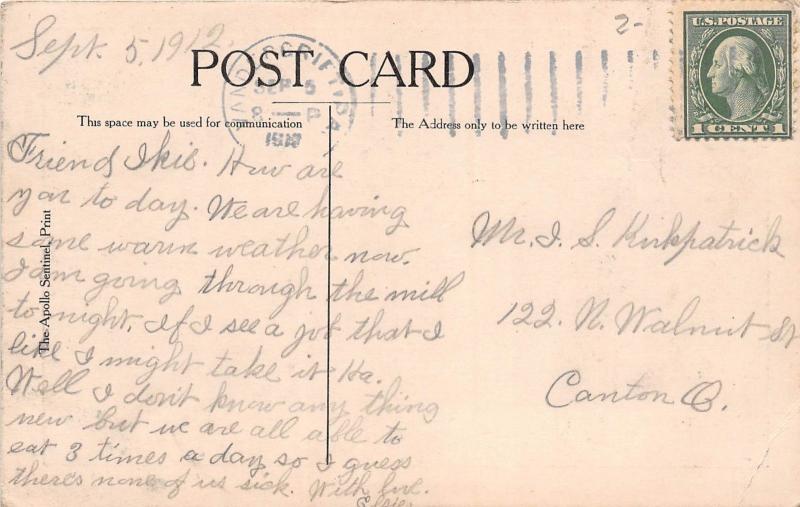 Sept. 5, 1912.
2-
POST CARD
U.S. POSTAGE
1 CENT 1
SEP 5
8 P
This space may be used for communication
The Address only to be written here
Friend Ikie. How are
you to day. We are having
some warm weather now.
I am going through the mill
to night. If I see a job that I
like I might take it Ha.
Well I don't know any thing
new but we are all able to
eat 3 times a day so I guess
there's none of us sick. With love.
The Apollo Sentinel Print
Mr. I. S. Kirkpatrick
122. N. Walnut St
Canton O.